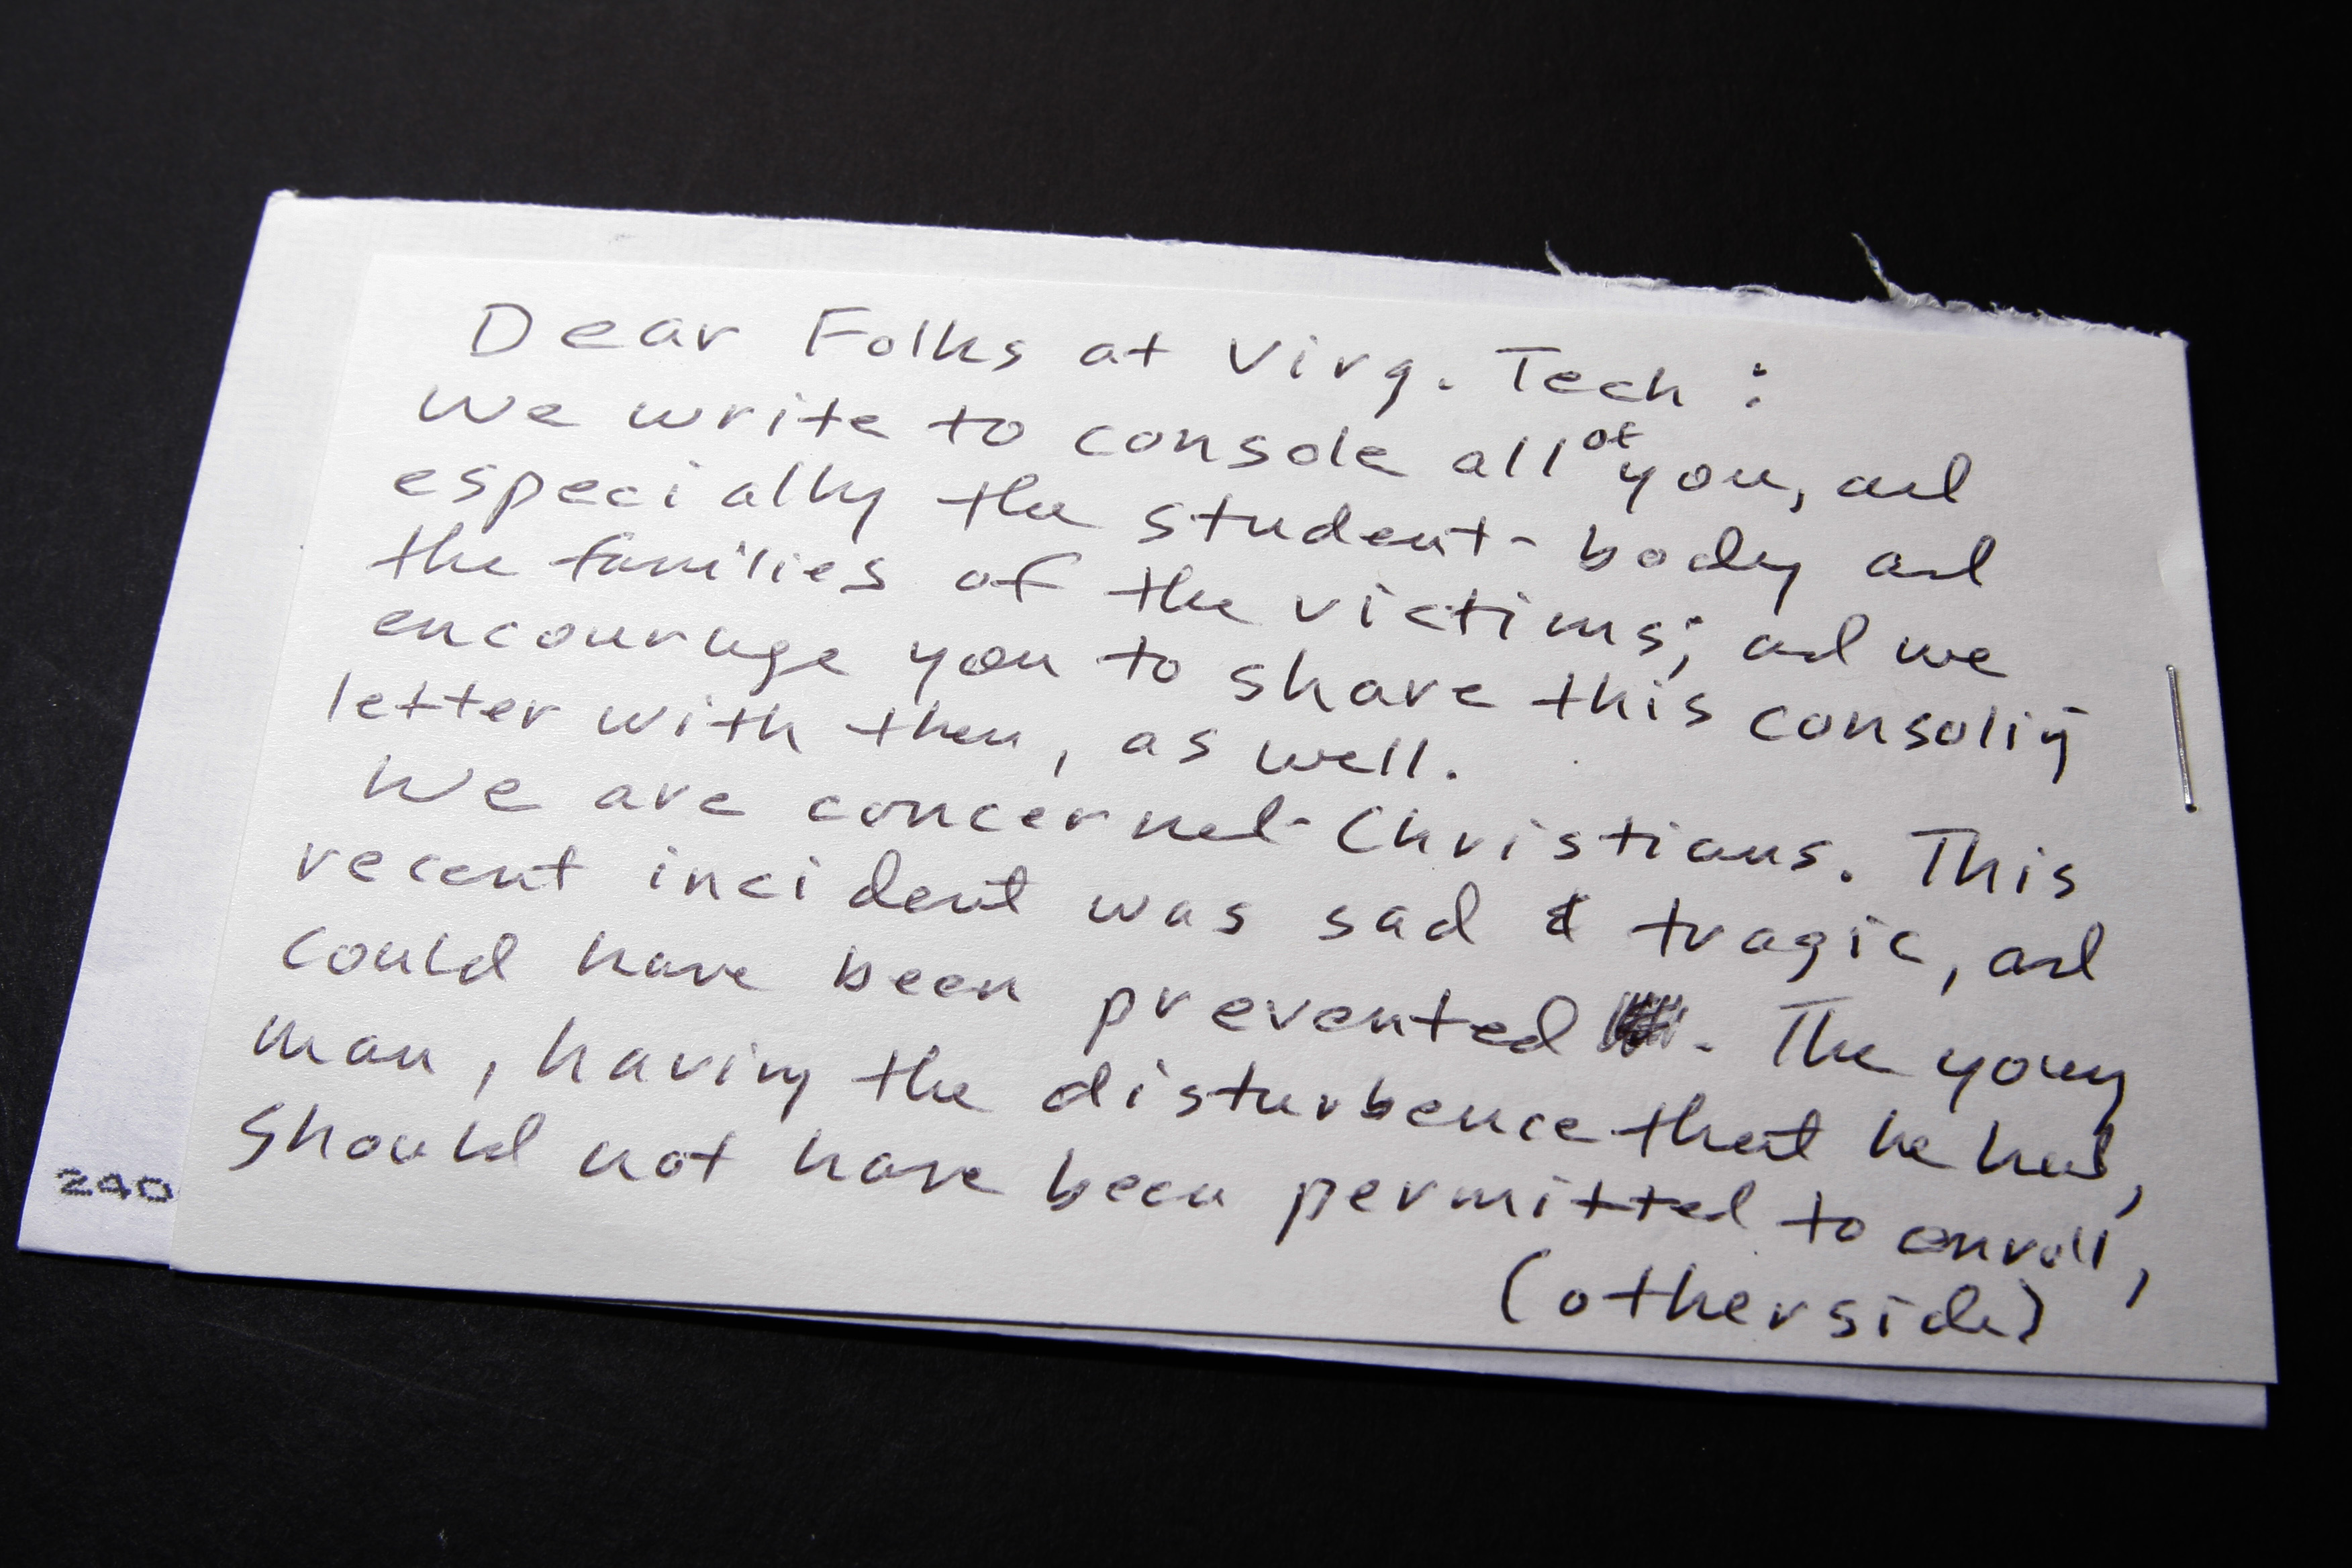 Dear Folks at Virg. Tech :
We write to console all of you, and
especially the student-body and
the families of the victims; and we
encourage you to share this consoling
letter with them, as well.
We are concerned-Christians. This
recent incident was sad & tragic, and
could have been prevented . The young
man, having the disturbence that he had,
should not have been permitted to enroll,
(otherside)
240